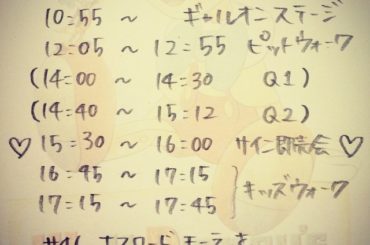 10:55 ～ ギャルオンステージ
12:05 ～ 12:55 ピットウォーク
(14:00 ～ 14:30 Q1)
(14:40 ～ 15:12 Q2)
♡ 15:30 ～ 16:00 サイン即売会 ♡
16:45 ～ 17:15
キッズウォーク
17:15 ～ 17:45